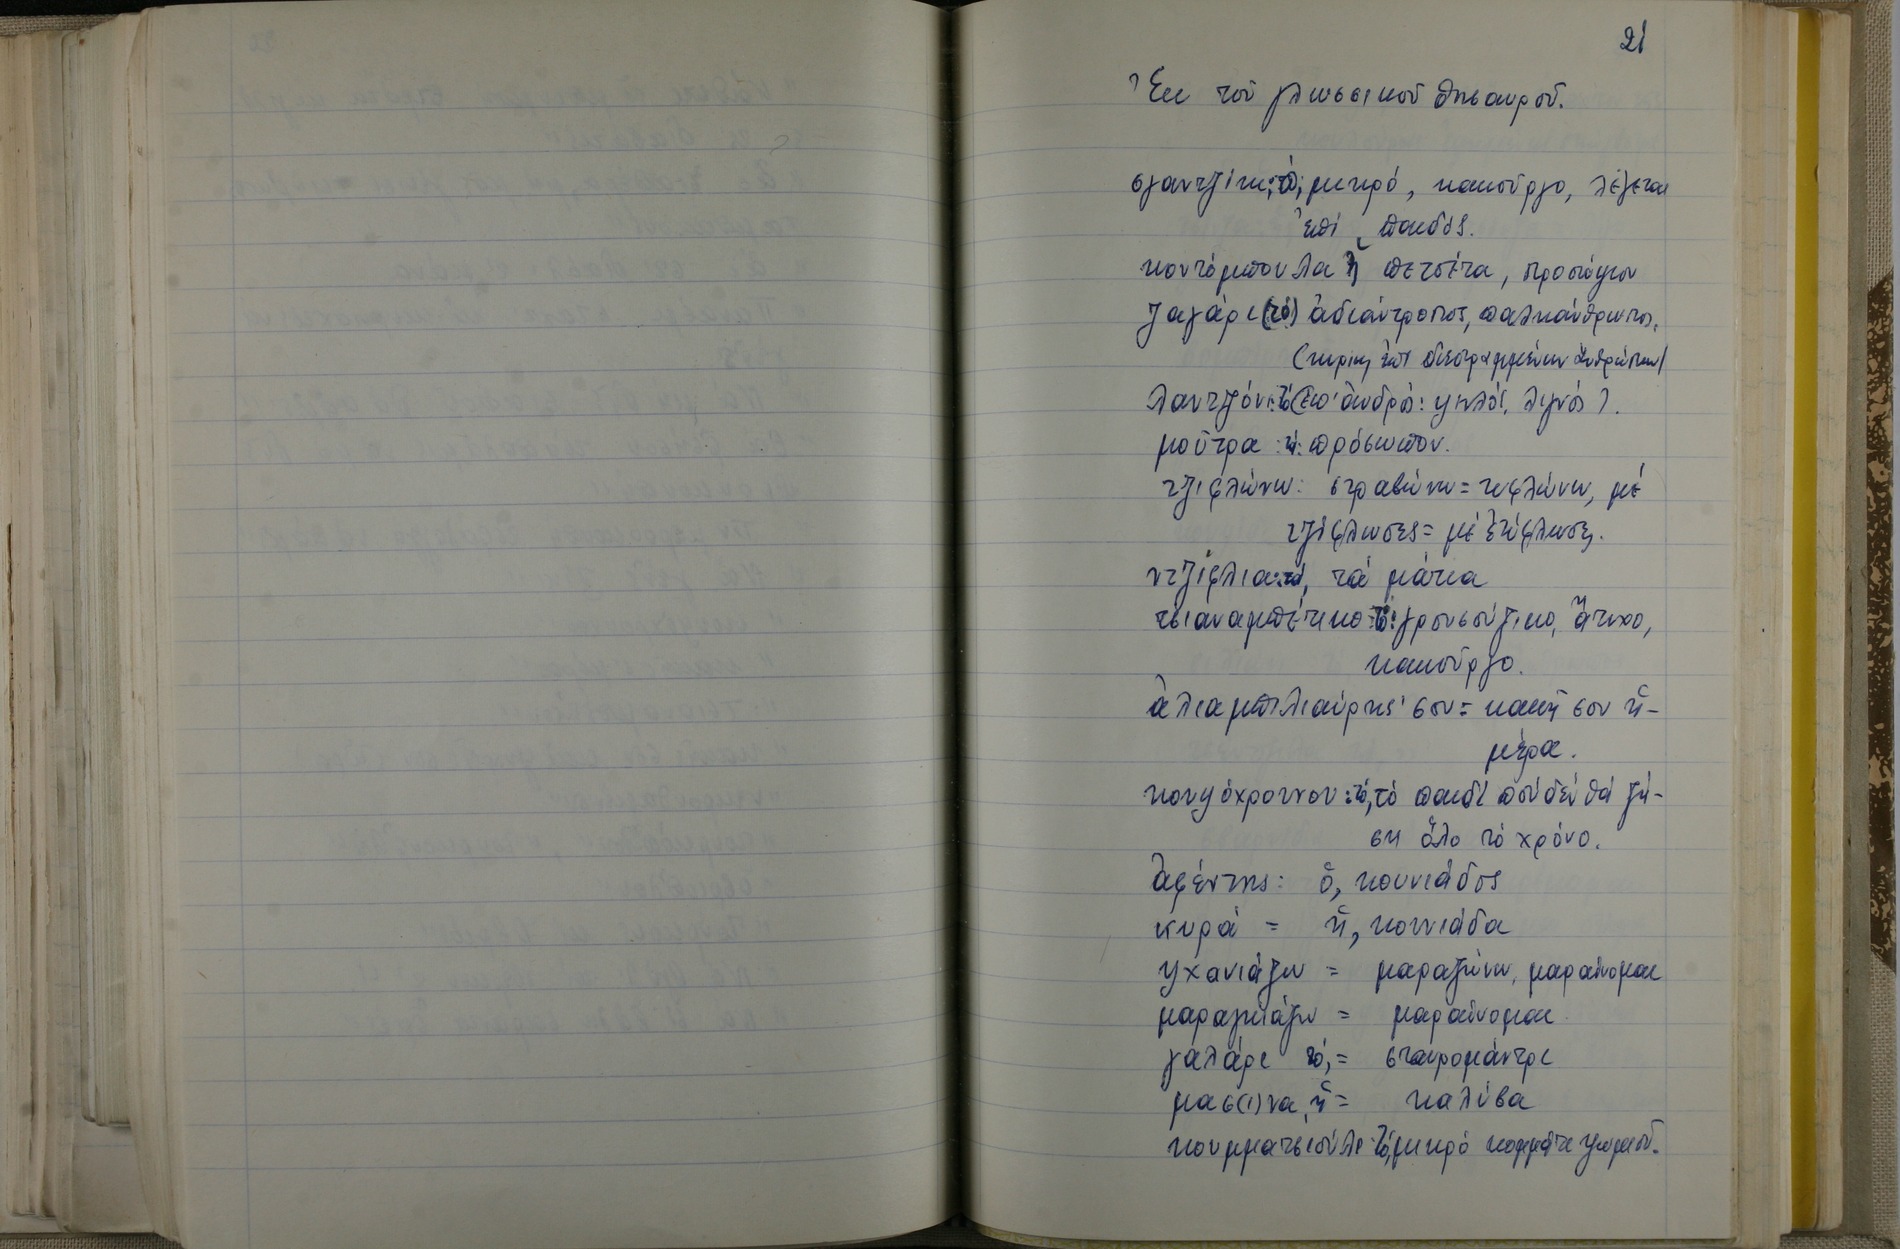 21
Ἐκ τοῦ γλωσσικοῦ θησαυροῦ.
σγαντζίκι, τό; μικρό, κακοῦργο, λέγεται
ἐπί παιδός.
κοντόμπουλα ἡ πετσέτα, προσόψιον
ζαγάρι (τό) ἀδιάντροπος, παληάνθρωπος.
(κυρίως ἐπί διεστραμμένων ἀνθρώπων)
λαντζόνι: τό (ἐπί ἀνδρός: ψηλός, λιγνός).
μοῦτρα: τά: πρόσωπον.
τζιφλώνω: στραβώνω = τυφλώνω, μέ
τζίφλωσες = μέ ἐτύφλωσες.
ντζίφλια: τά, τά μάτια
τσιαναμπέτικο τό: γρουσούζικο, ἄτυχο,
κακοῦργο.
ἀλιαμπιλιαύρης' σου = κακή σου ἡ-
μέρα.
κουψόχρονον: τό, τό παιδί πού δέν θά ζή-
ση ὅλο τό χρόνο.
ἀφέντης: ὁ, κουνιάδος
κυρά = ἡ, κουνιάδα
ψχανιάζω = μαραζώνω, μαραίνομαι
μαραγκιάζω = μαραίνομαι
γαλάρι τό, = σταυρομάντρι
μασ(ι)να, ἡ = καλύβα
κουμματσιούλι τό, μικρό κομμάτι ψωμιοῦ.